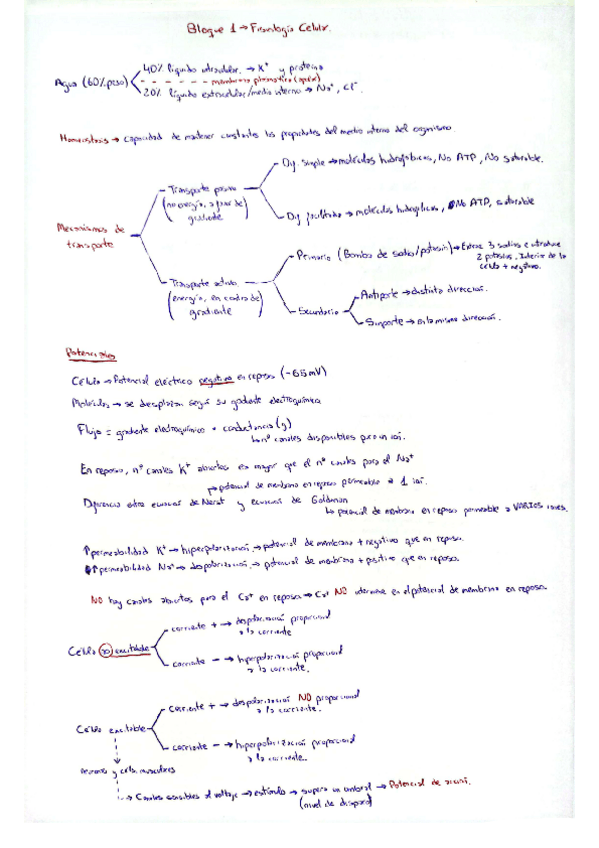 Bloque 1 → Fisiología Celular.
Agua (60% peso)
40% líquido intracelular. → K⁺ y proteína
membrana plasmática
20% líquido extracelular/medio interno → Na⁺, Cl⁻.
Homeostasis → Capacidad de mantener constantes las propiedades del medio interno del organismo
Mecanismos de transporte
Transporte pasivo
(no energía, a favor de gradiente)
Dif. simple → moléculas hidrofóbicas, No ATP, No saturable.
Dif. facilitada → moléculas hidrofílicas, No ATP, saturable
Transporte activo
(energía, en contra de gradiente)
Primario (Bomba de sodio/potasio) → Extrae 3 sodios e introduce
2 potasios. Interior de la
célula + negativo.
Secundario
Antiporte → distinta dirección.
Simporte → en la misma dirección.
Potenciales
Célula → Potencial eléctrico negativo en reposo (-65mV)
Moléculas → se desplazan según su gradiente electroquímico
Flujo = gradiente electroquímico · conductancia (g)
↳ nº canales disponibles para un ion.
En reposo, nº canales K⁺ abiertos es mayor que el nº canales para el Na⁺
↱ potencial de membrana en reposo permeable a 1 ion.
Diferencia entre ecuación de Nernst y ecuación de Goldman
↳ potencial de membrana en reposo permeable a VARIOS iones.
↑ permeabilidad K⁺ → hiperpolarización → potencial de membrana + negativo que en reposo.
↑ permeabilidad Na⁺ → despolarización → potencial de membrana + positivo que en reposo.
NO hay canales abiertos para el Ca²⁺ en reposo → Ca²⁺ NO interviene en el potencial de membrana en reposo.
Célula no excitable
corriente + → despolarización proporcional
a la corriente
corriente - → hiperpolarización proporcional
a la corriente.
Célula excitable
corriente + → despolarización NO proporcional
a la corriente.
corriente - → hiperpolarización proporcional
a la corriente.
neuronas y céls. musculares
Canales sensibles al voltaje → estímulo → supera un umbral → Potencial de acción.
(nivel de disparo)